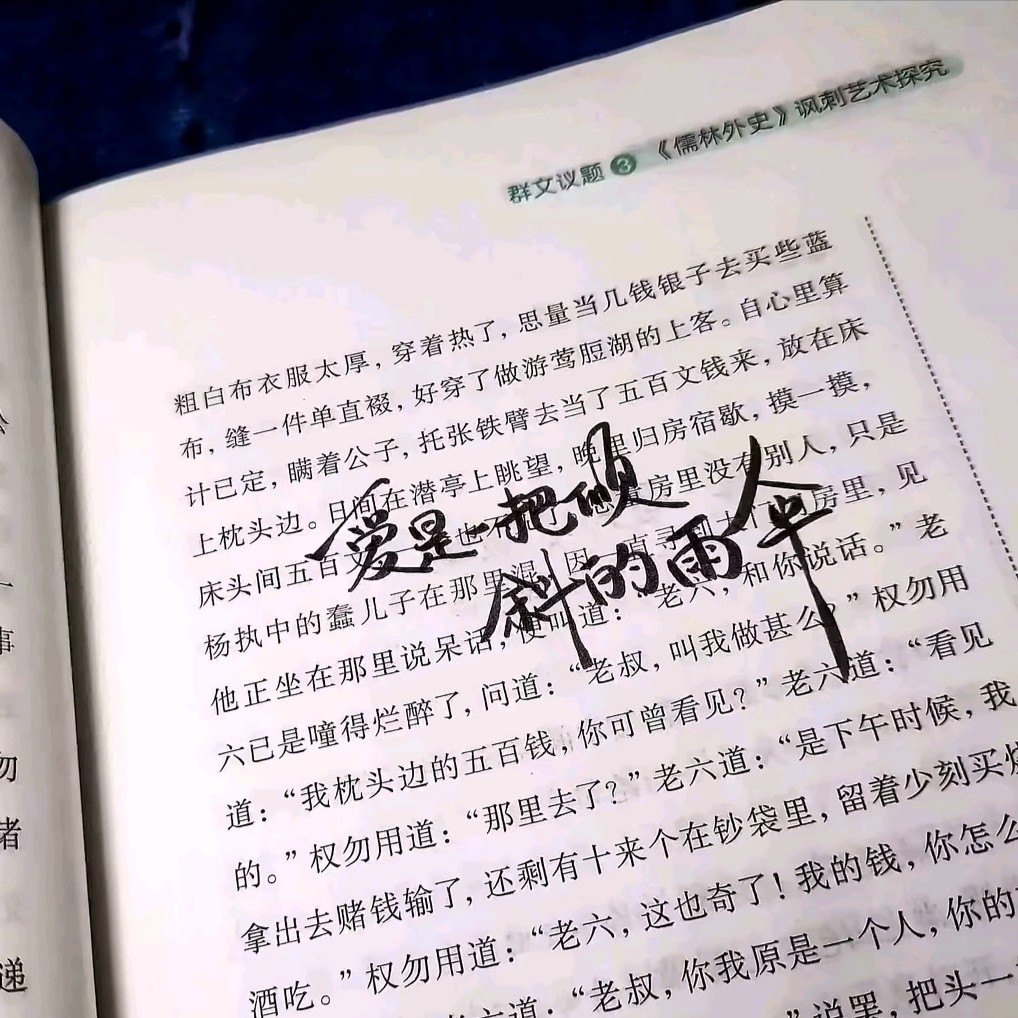 群文议题 3 《儒林外史》讽刺艺术探究
粗白布衣服太厚，穿着热了，思量当几钱银子去买些蓝
布，缝一件单直裰，好穿了做游莺脰湖的上客。自心里算
计已定，瞒着公子，托张铁臂去当了五百文钱来，放在床
上枕头边。日间在潜亭上眺望，晚里归房宿歇，摸一摸，
床头间五百文 也不 房里没有别人，只是
杨执中的蠢儿子在那里混，因一直寻到 房里，见
他正坐在那里说呆话，便叫道：“老六，和你说话。”老
六已是噇得烂醉了，问道：“老叔，叫我做甚么？”权勿用
道：“我枕头边的五百钱，你可曾看见？”老六道：“看见
的。”权勿用道：“那里去了？”老六道：“是下午时候，我
拿出去赌钱输了，还剩有十来个在钞袋里，留着少刻买烧
酒吃。”权勿用道：“老六，这也奇了！我的钱，你怎么
六道：“老叔，你我原是一个人，你的
”说罢，把头一
爱是一把倾
斜的雨伞
事
勿
者
递